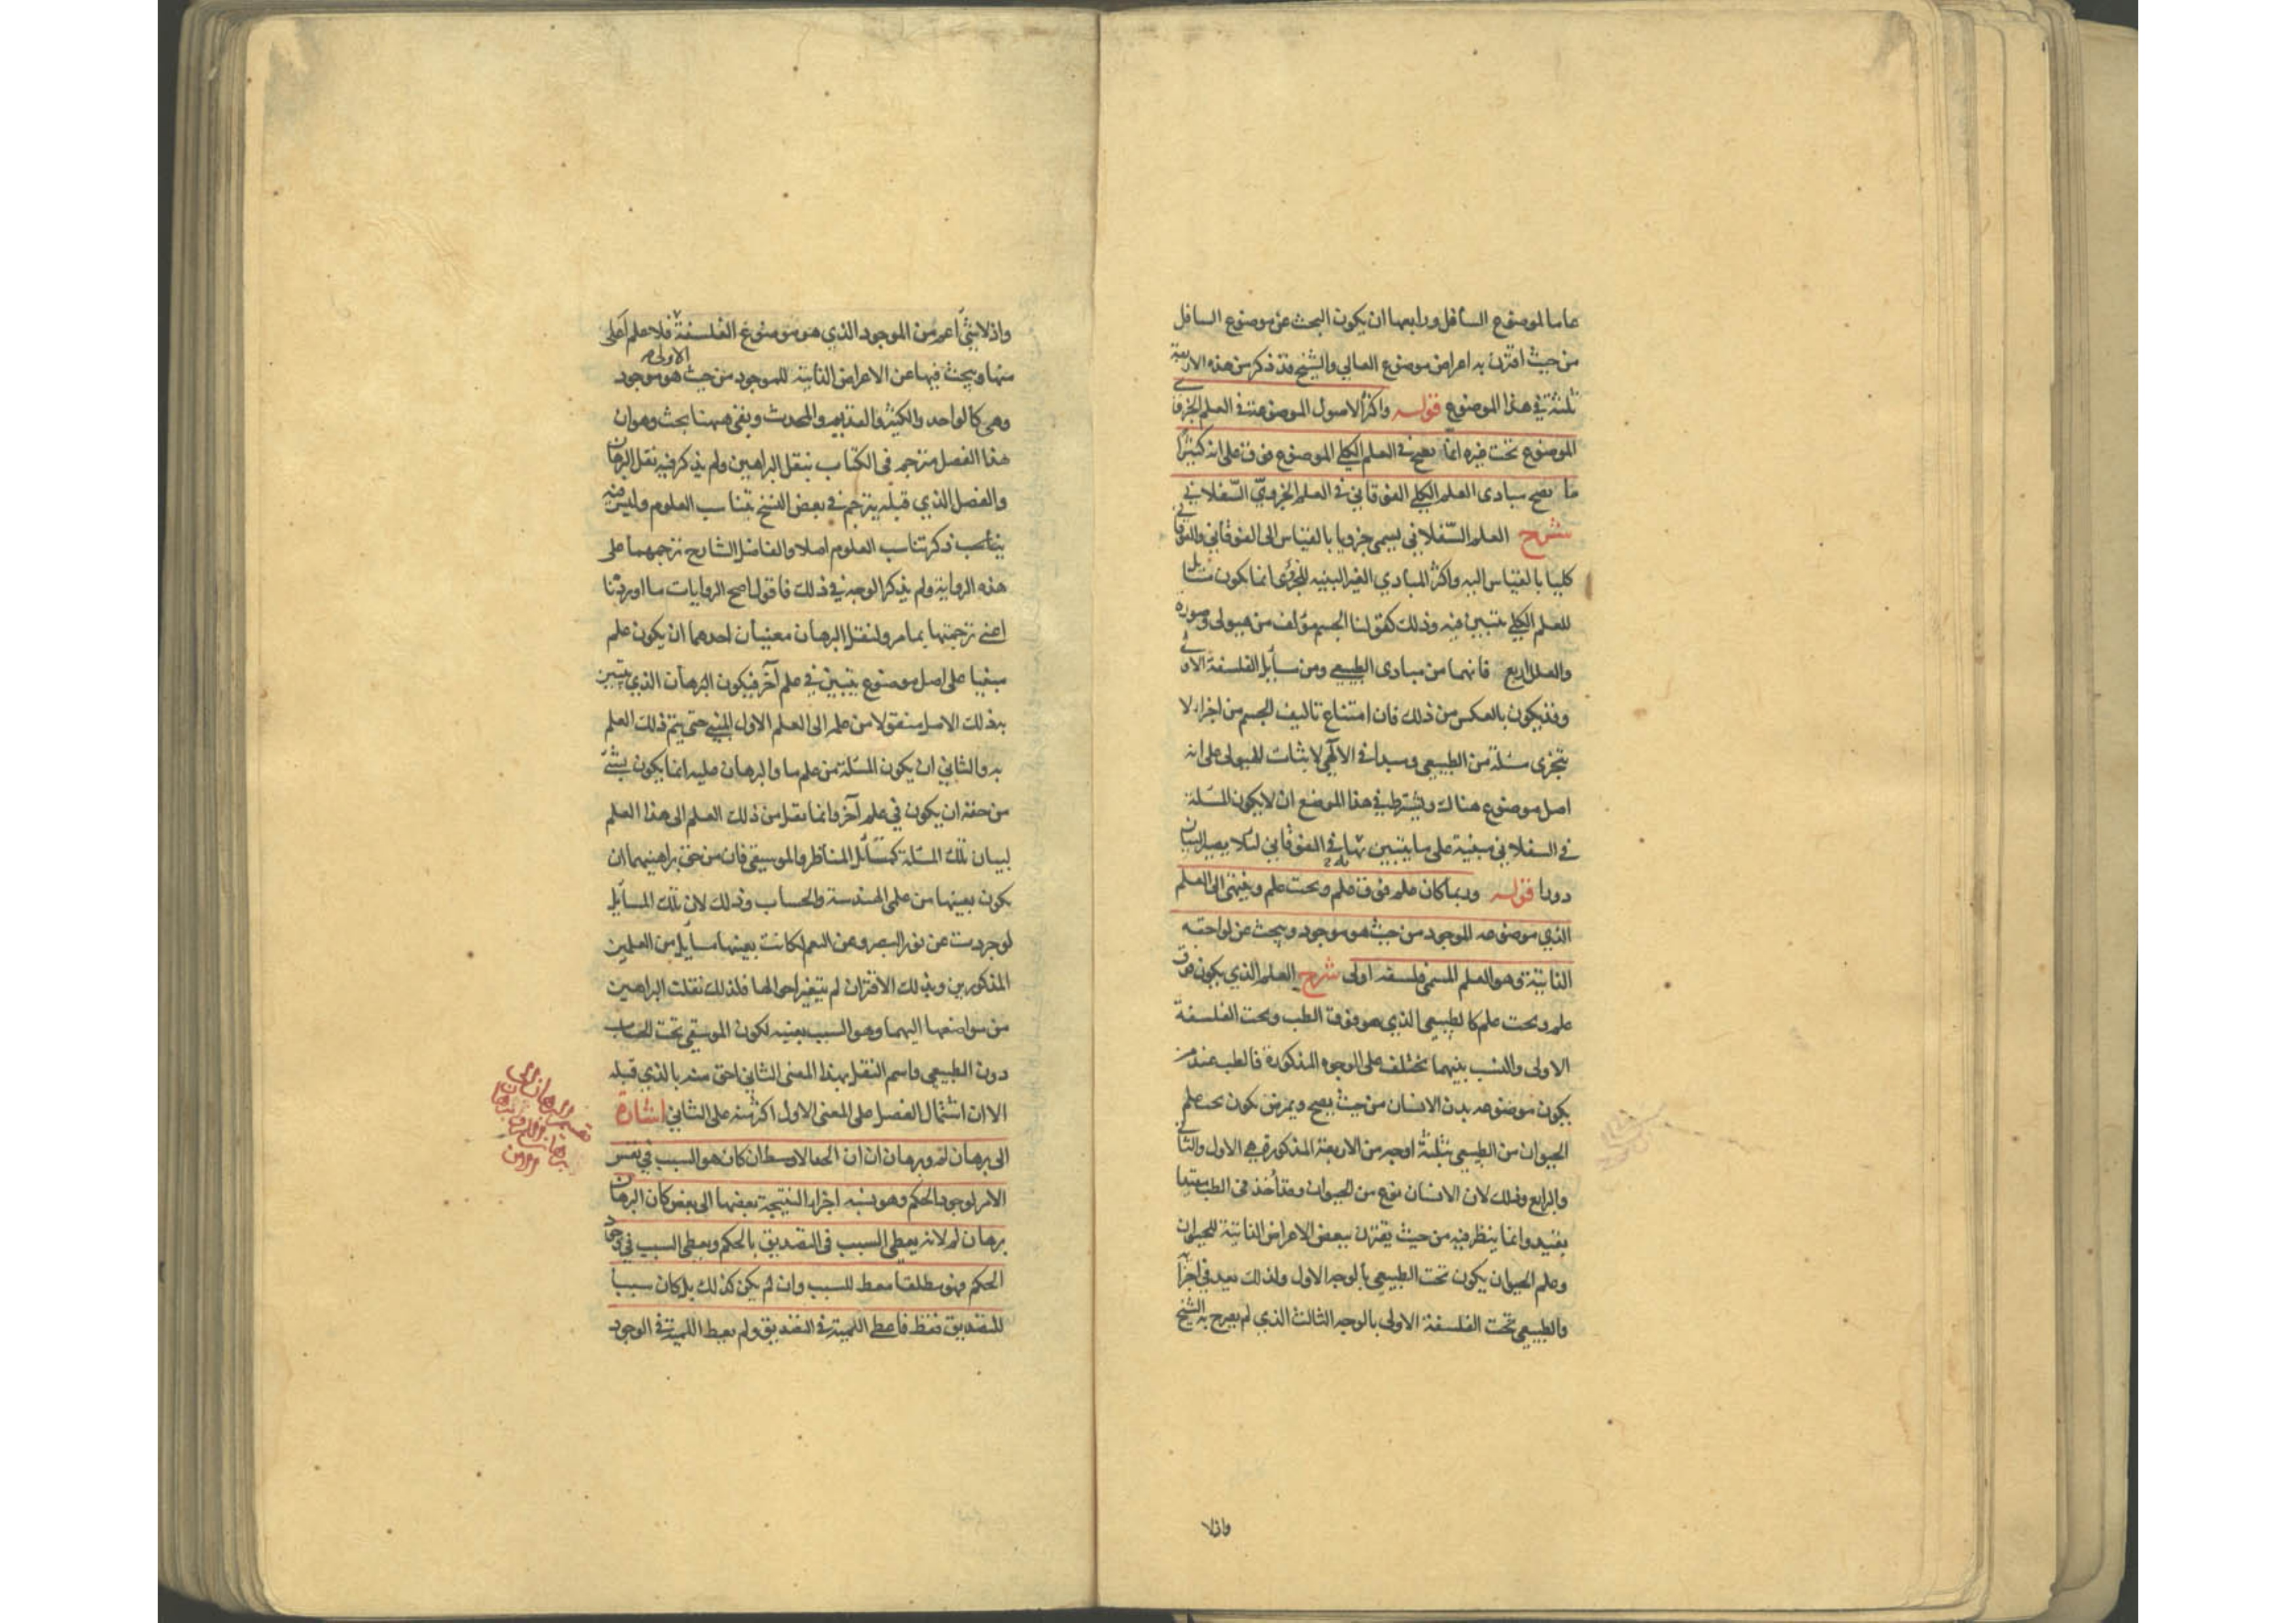 عاما لموضوع السافل ورابعها ان يكون البحث عن موضوع السافل
من حيث اقترن به اعراض موضوع العالي والشيخ قد ذكر من هذه الاربعة
ثلثة في هذا الموضوع قوله واكثر الاصول الموضوعة في العلم الجزوي
الموضوع تحت غيره انما يصح في العلم الكلي الموضوع فوق على انه كثيرا
ما يصح مبادى العلم الكلي الفوقاني في العلم الجزوي السفلاني
شرح العلم السفلاني يسمى جزويا بالقياس الى الفوقاني والفوقاني
كليا بالقياس اليه واكثر المبادي الغير البينيه للجزئى انما يكون مسائل
للعلم الكلي يتبين فيه وذلك كقولنا الجسم مؤلف من هيولى وصورة
والعلل اربع فانهما من مبادى الطبيعي ومن مسأيل الفلسفة الاولى
وقد يكون بالعكس من ذلك فان امتناع تاليف الجسم من اجزاء لا
يتجزى مسئلة من الطبيعي ومبدأ في الالٓهي لاثبات الهيولى على انه
اصل موضوع هناك ويشترط في هذا الموضع ان لا يكون المسئلة
في السفلاني مبنية على ما يتبين بها في الفوقاني لئلا يصير البيان
دورا قوله وربما كان علم فوق علم وتحت علم وينتهى الى العلم
الذي موضوعه الموجود من حيث هو موجود ويبحث عن لواحقه
الذاتية وهو العلم المسمى فلسفه اولى شرح العلم الذي يكون فوق
علم وتحت علم كالطبيعي الذي هو فوق الطب وتحت الفلسفة
الاولى والنسب بينهما تختلف على الوجوه المذكورة فالطب عند من
يكون موضوعه بدن الانسان من حيث يصح ويمرض يكون تحت علم
الحيوان من الطبيعي بثلثة اوجه من الاربعة المذكورة هي الاول والثاني
والرابع وذلك لان الانسان نوع من الحيوان وقد أخذ في الطب مقيدا
بقيد وانما ينظر فيه من حيث يقترن ببعض الاعراض الذاتية للحيوان
وعلم الحيوان يكون تحت الطبيعي بالوجه الاول ولذلك يعد في اجزائه
والطبيعي تحت الفلسفة الاولى بالوجه الثالث الذي لم يصرح به الشيخ
واذلا
واذ لا شئ اعم من الموجود الذي هو موضوع الفلسفة الاولى فلا علم اعلى
منها ويبحث فيها عن الاعراض الذاتية للموجود من حيث هو موجود
وهى كالواحد والكثير والقديم والمحدث وبقى ههنا بحث وهو ان
هذا الفصل مترجم في الكتاب بنقل البراهين ولم يذكر فيه نقل البرهان
والفصل الذي قبله يترجم في بعض النسخ بتناسب العلوم وليس فيه
بيناسب ذكر تناسب العلوم اصلا والفاضل الشارح ترجمهما على
هذه الرواية ولم يذكر الوجه في ذلك فاقول اصح الروايات ما اوردنا
اعنى ترجمتها بما مر ولنقل البرهان معنيان احدهما ان يكون علم
مبنيا على اصل موضوع يتبين في علم آخر فيكون البرهان الذي يتبين
بذلك الاصل منقولا من علم الى العلم الاول المبني حتى يتم ذلك العلم
به والثاني ان يكون المسئلة من علم ما والبرهان عليه انما يكون بشئ
من حقه ان يكون في علم آخر وانما نقل من ذلك العلم الى هذا العلم
لبيان تلك المسئلة كمسائل المناظر والموسيقى فان من حق براهينهما ان
يكون بعينها من علمي الهندسة والحساب وذلك لان تلك المسأيل
لو جردت عن نور البصر وعن النغم لكانت بعينها مسأيل من العلمين
المذكورين وبذلك الاقتران لم يتغير احوالها فلذلك نقلت البراهين
من مواضعها اليهما وهو السبب بعينه لكون الموسيقى تحت الحساب
دون الطبيعي واسم النقل بهذا المعنى الثاني احق منه بالذي قبله
الا ان اشتمال الفصل على المعنى الاول اكثر منه على الثاني اشارة
الى برهان لم وبرهان ان ان الحد الاوسط ان كان هو السبب في نفس
الامر لوجود الحكم وهو نسبه اجزاء النتيجة بعضها الى بعض كان البرهان
برهان لم لانه يعطى السبب في التصديق بالحكم ويعطى السبب في وجود
الحكم فهو مطلقا معط للسبب وان لم يكن كذلك بل كان سببا
للتصديق فقط فاعطى اللمية في التصديق ولم يعط اللمية في الوجود